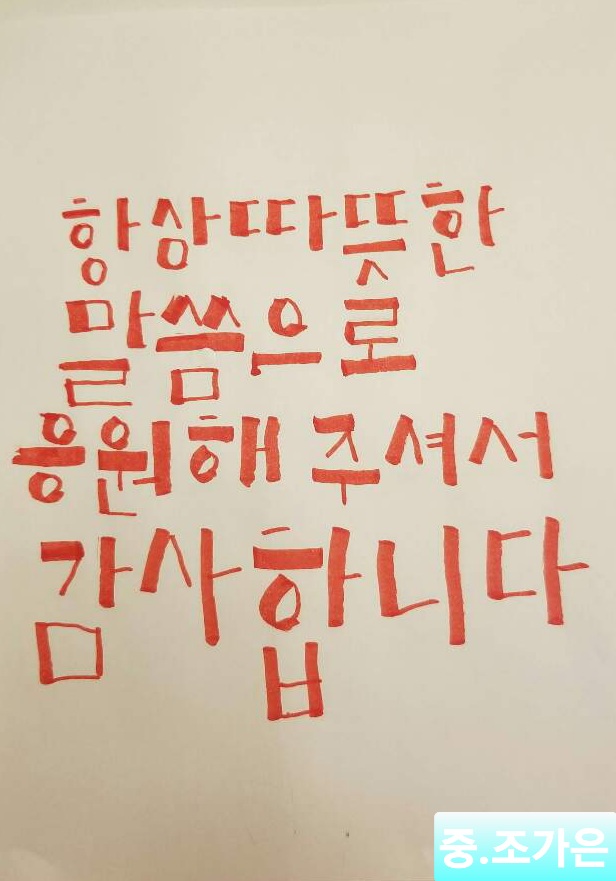 항상 따뜻한
말씀으로
응원해 주셔서
감사합니다
중.조가은